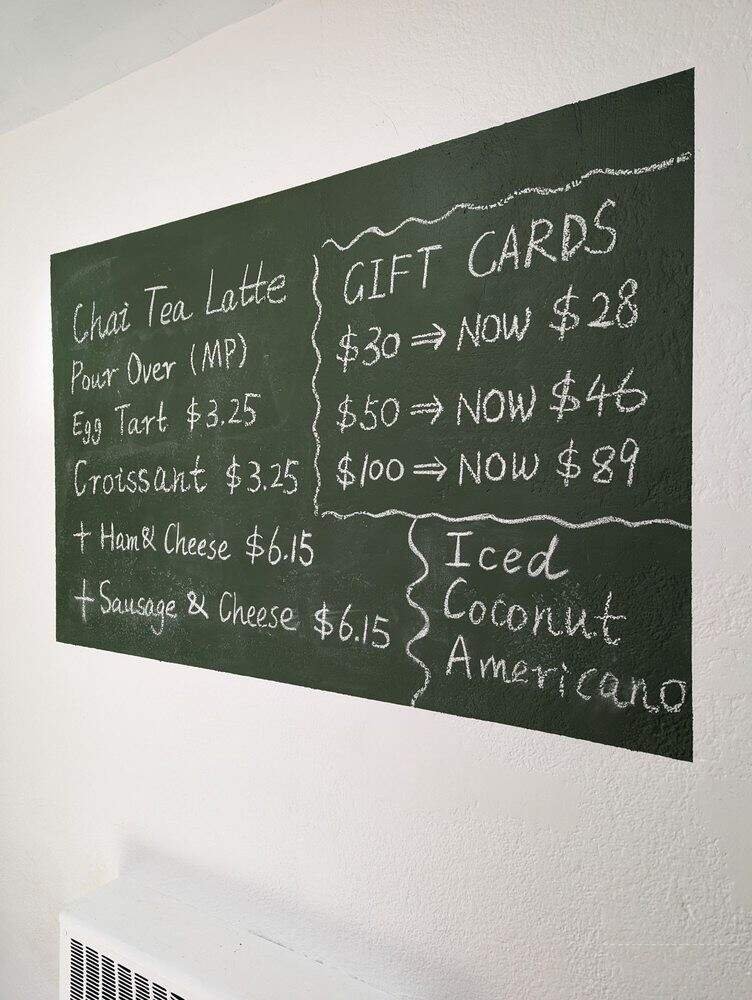 Chai Tea Latte
Pour Over (MP)
Egg Tart $3.25
Croissant $3.25
+ Ham & Cheese $6.15
+ Sausage & Cheese $6.15
GIFT CARDS
$30 ⇒ NOW $28
$50 ⇒ NOW $46
$100 ⇒ NOW $89
Iced
Coconut
Americano